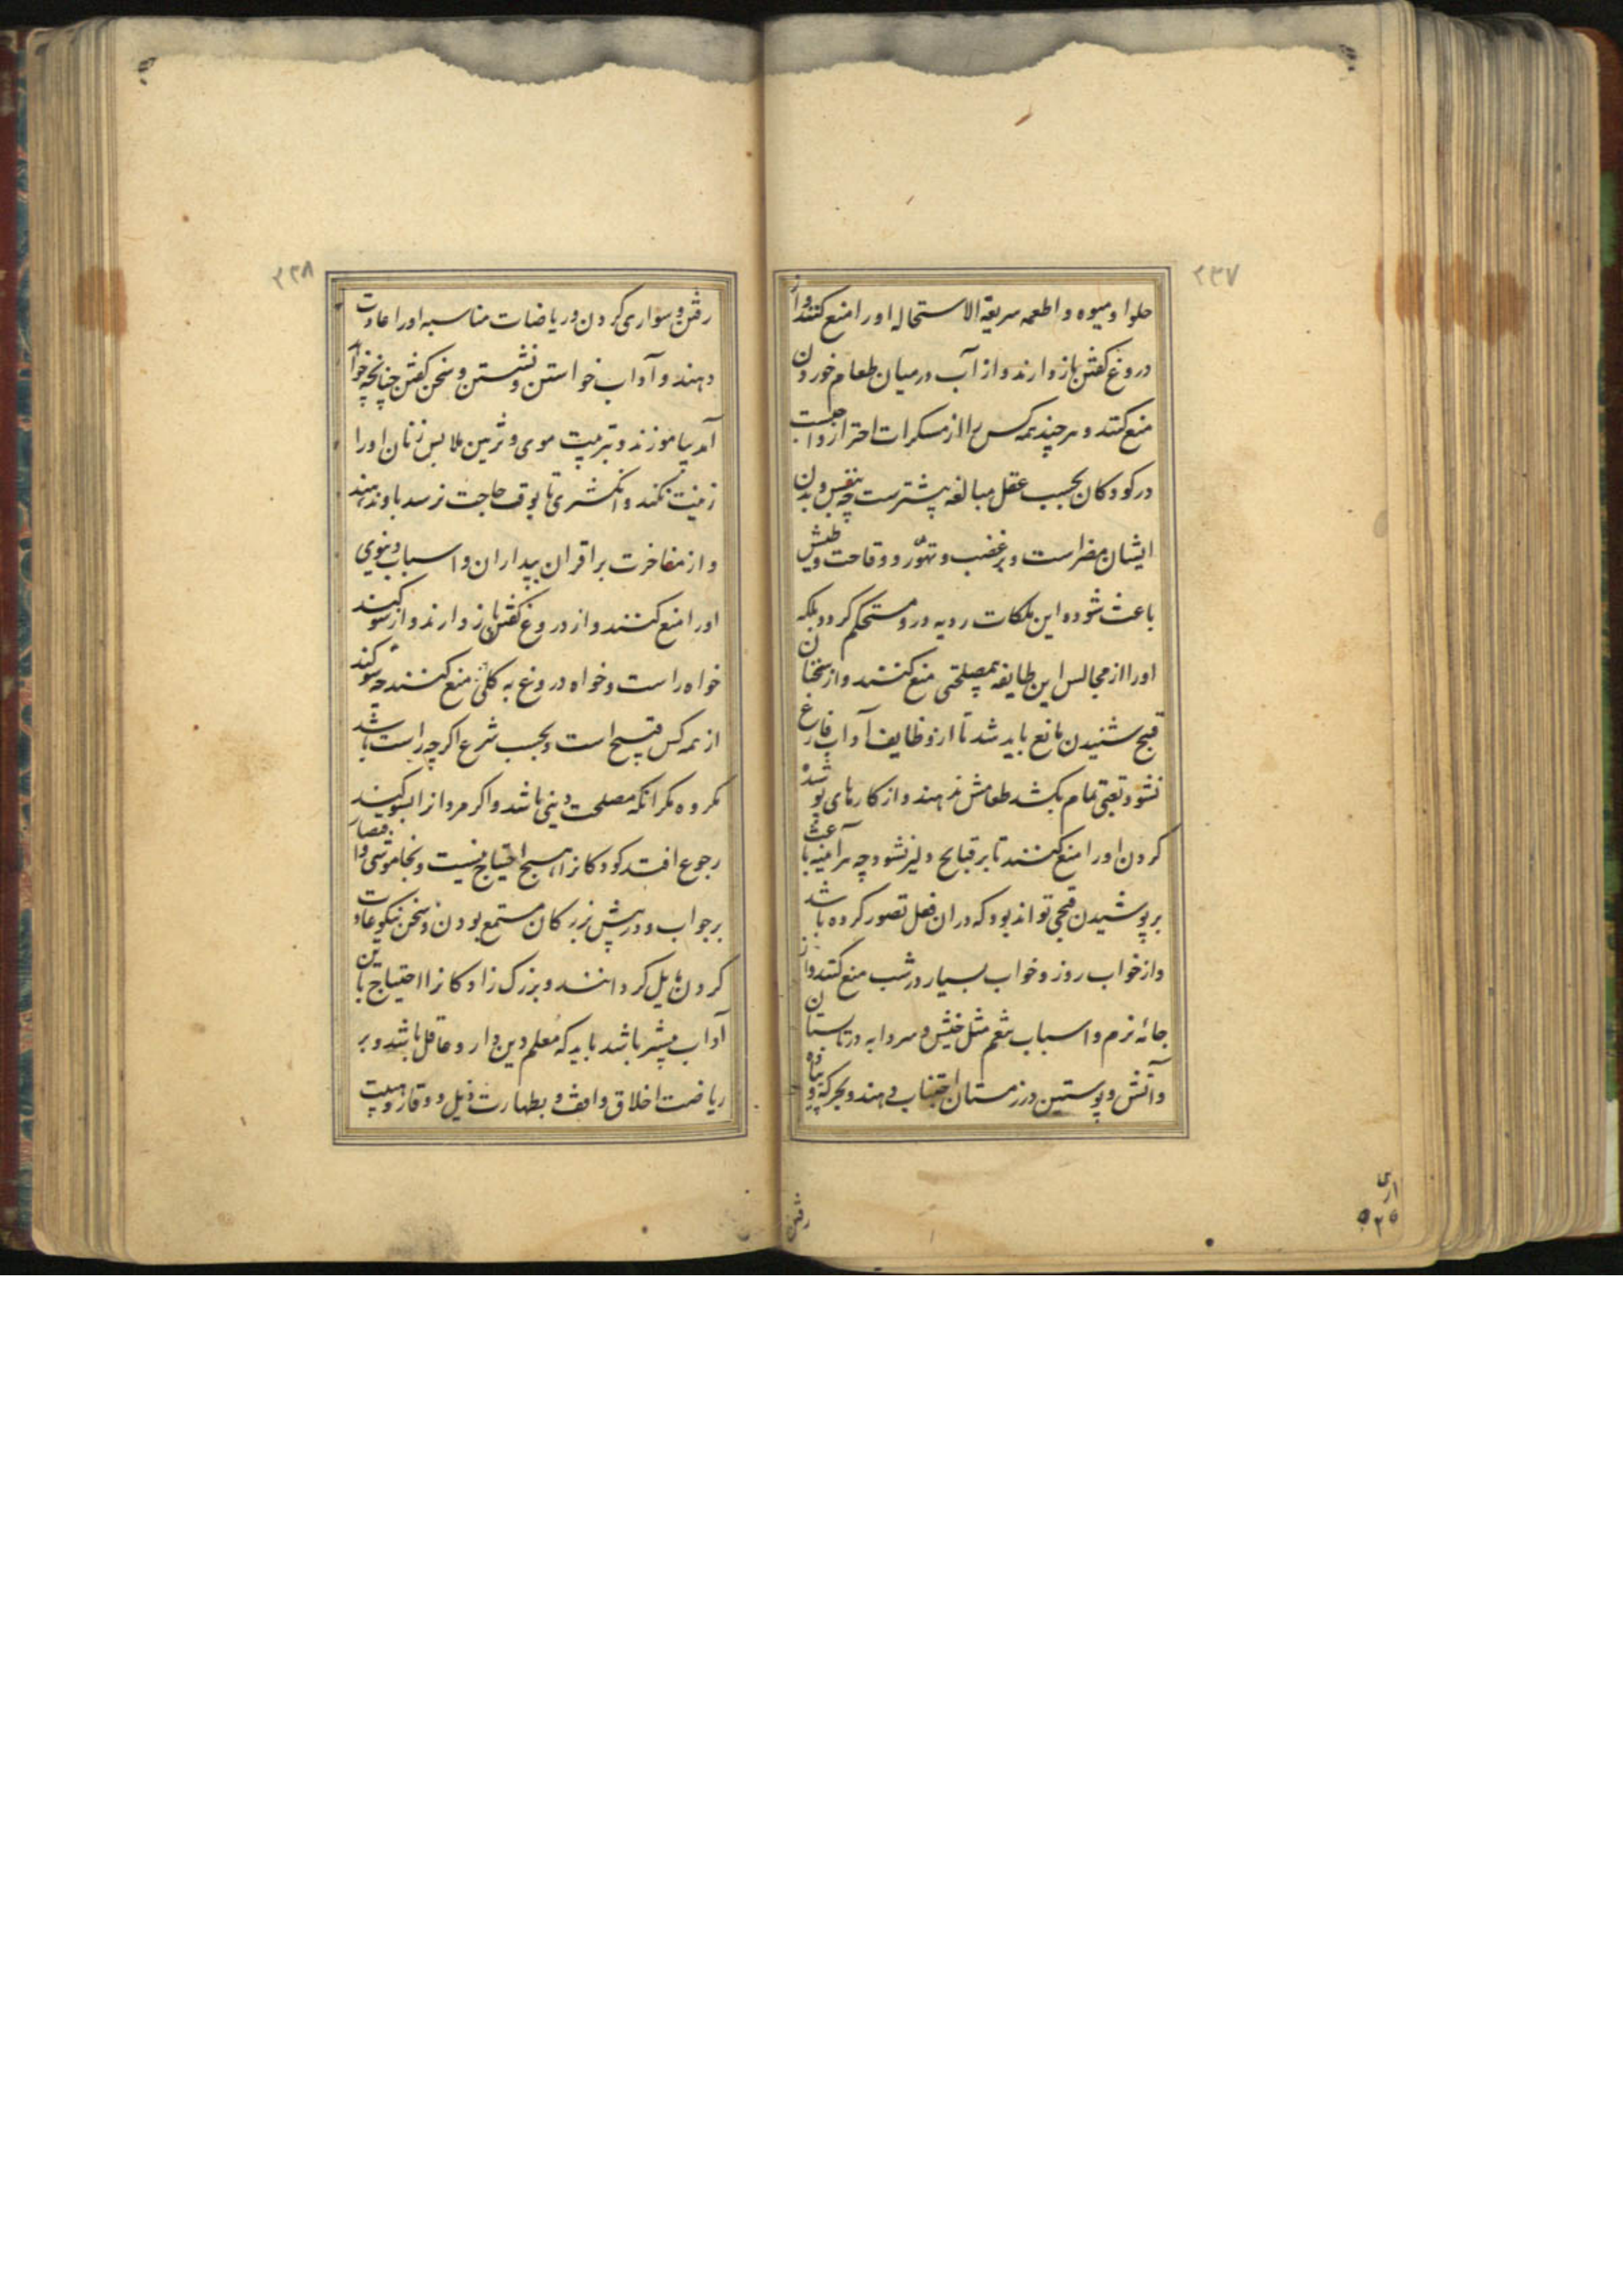 ۲۳۷
حلوا و میوه و اطعمه سریعة الاستحاله او را منع کنند و از
دروغ گفتن باز دارند و از آب در میان طعام خوردن
منع کنند و هر چند همه کس را از مسکرات احتراز واجبست
در کودکان بحسب عقل مبالغه بیشترست چه بنفس و بدن
ایشان مضر است و بر غضب و تهوّر و وقاحت و طیش
باعث شود و این ملکات ردیه در و مستحکم گردد بلکه
او را از مجالس این طایفه بمصلحتی منع کنند و از سخنان
قبیح شنیدن مانع باید شد تا از وظایف آداب فارغ
نشود و تعبی تمام بکشد طعامش ندهند و از کارهای پوشیده
کردن او را منع کنند تا بر قبایح دلیر نشود چه هر آینه باعث
بر پوشیدن قبحی تواند بود که در ان فعل تصور کرده باشد
و از خواب روز و خواب بسیار در شب منع کنند و از
جامه نرم و اسباب تنعم مثل خیش و سردابه در تابستان
و آتش و پوستین در زمستان اجتناب دهند و بحرکة و پیاده
رفتن
۲۳۸
رفتن و سواری کردن و ریاضات مناسبه او را عادت
دهند و آداب خواستن و نشستن و سخن گفتن چنانچه خواهد
آمد بیاموزند و بتربیت موی و تزیین ملابس زنان او را
زینت نکنند و انگشتری تا بوقت حاجت نرسد باو ندهند
و از مفاخرت بر اقران بپداران و اسباب دنیوی
او را منع کنند و از دروغ گفتن باز دارند و از سوگند
خواه راست و خواه دروغ به کلی منع کنند چه سوگند
از همه کس قبیح است و بحسب شرع اگر چه راست باشد
مکروه مگر انکه مصلحت دینی باشد و اگر مردانرا بسوگند
رجوع افتد کودکانرا هیچ احتیاج نیست و بخاموشی و اقتصار
بر جواب و در پیش بزرگان مستمع بودن و سخن نیکو عادت
کردن مایل گردانند و بزرگ زادگانرا احتیاج باین
آداب بیشتر باشد باید که معلم دین دار و عاقل باشد و بر
ریاضت اخلاق واقف و بطهارت ذیل و وقار و هیبت